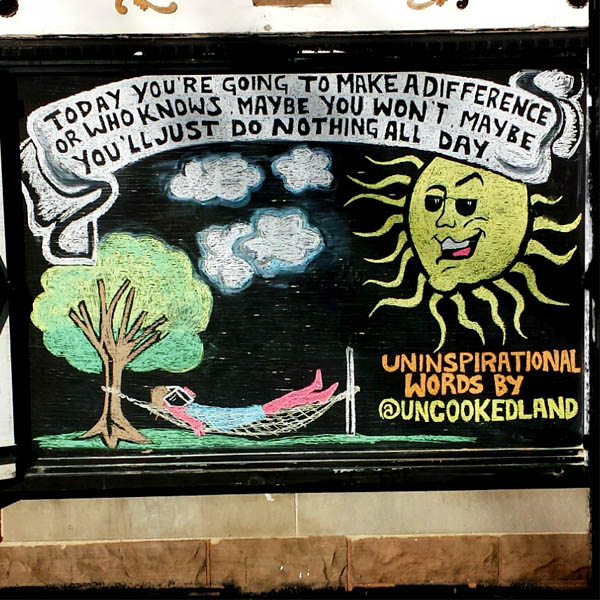 TODAY YOU'RE GOING TO MAKE A DIFFERENCE
OR WHO KNOWS, MAYBE YOU WON'T, MAYBE
YOU'LL JUST DO NOTHING ALL DAY
UNINSPIRATIONAL
WORDS BY
@UNCOOKEDLAND